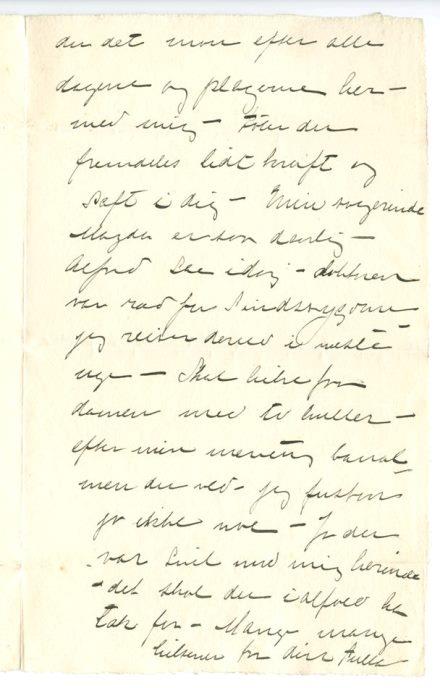 du det mon efter alle
dagene og plagerne her –
med mig – Föler du
fremdeles lidt kraft og
saft i dig – Min svigerinde
Magda er saa daarlig –
Alfred See idag – doktoren
var ræd for Sindssygdom
jeg reiser derned i næste
uge – Skal hilse fra
damen med to huller –
efter min mening banal
men du ved – jeg
jo ikke noe – Ja du
var snil mod mig herinde
– det skal du ialfald ha
tak for – Mange mange
hilsener fra din